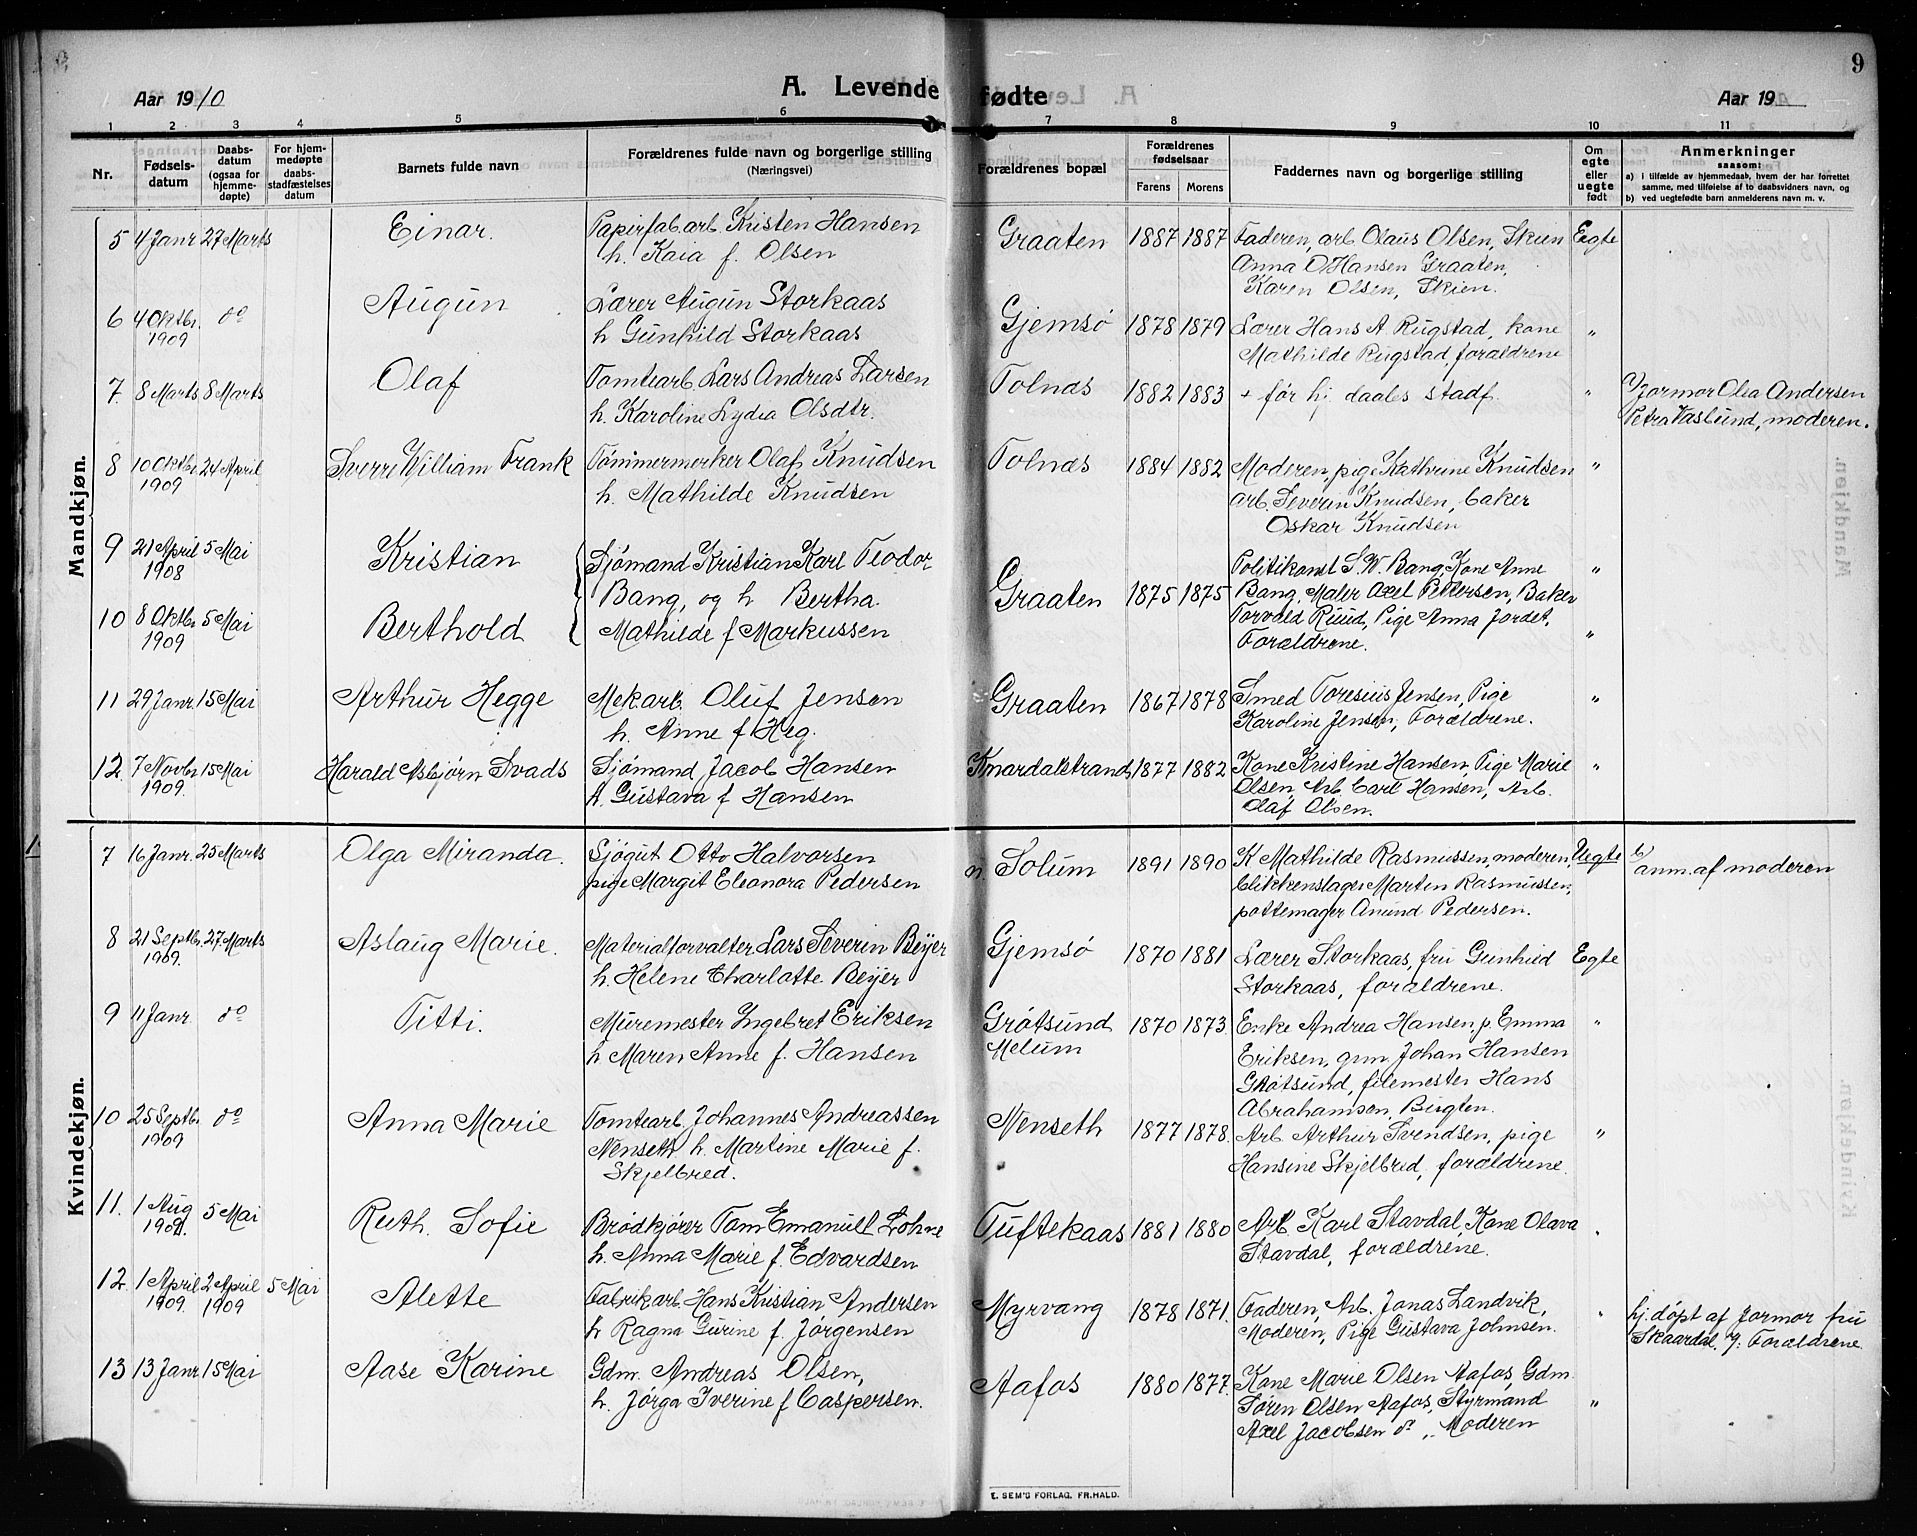 Aar 1910
A. Levende fødte
Aar 19
9
1 2 3 4 5 6 7 8 9 10 11
Nr.
Fødsels-
datum
Daabs-
datum
(ogsaa for
hjemme-
døpte)
For hjem-
medøpte
daabs-
stadfæstelses
datum
Barnets fulde navn
Forældrenes fulde navn og borgerlige stilling
(Næringsvei)
Forældrenes bopæl
Forældrenes
fødselsaar
Farens Morens
Faddernes navn og borgerlige stilling
Om
egte
eller
uegte
født
Anmerkninger
saasom:
a) i tilfælde av hjemmedaab, hvem der har forrettet
samme, med tilføielse af to daabsvidners navn, og
b) ved uegtefødte barn anmelderens navn m. v.
Mandkjøn.
5 4 Janr 27 Marts Einar. Papirfabarb Kristen Hansen Graaten 1887 1887 Faderen, arb Olaus Olsen, Skien Egte
h. Kaia f. Olsen Anna O Hansen Graaten,
Karen Olsen, Skien.
6 4 Oktbr. do Augun Lærer Augun Storkaas Gjemsø 1878 1879 Lærer Hans A. Rugstad, kone "
1909 h Gunhild Storkaas Mathilde Rugstad, forældrene
7. 8 Marts 8 Marts Olaf Tomtearb Lars Andreas Larsen Tolnæs 1882 1883 + før hj. daabs stadf. " Jormor Olea Andersen
h. Karoline Lydia Olsdtr. Petra Vaslund, moderen.
8 10 Oktbr. 24 April Sverre William Frank Tømmermerker Olaf Knudsen Tolnæs 1884 1882 Moderen, pige Kathrine Knudsen "
1909 h. Mathilde Knudsen arb. Severin Knudsen, baker
Oskar Knudsen
9 21 April 5 Mai Kristian Sjømand Kristian Karl Teodor Graaten 1875 1875 Politikonst S. W. Bang, Kone Anne "
1908 Bang, og h Bertha Bang, Maler Axel Pettersen, Baker
10 8 Oktbr 5 Mai Berthold Mathilde f Markussen Torvald Ruud, Pige Anna Jordet, "
1909 Forældrene.
11 29 Janr. 15 Mai Arthur Hegge Mekarb. Oluf Jensen Graaten 1867 1878 Smed Toresius Jensen, Pige "
h. Anne f Heg. Karoline Jensen, Forældrene.
12. 7 Novbr 15 Mai Harald Asbjørn Svads Sjømand Jacob Hansen Knardalstrand 1877 1882 Kone Kristine Hansen, Pige Marie "
1909. h. Gustava f Hansen Olsen, Arb. Carl Hansen, Arb.
Olaf Olsen.
Kvindekjøn.
7 16 Janr. 25 Marts Olga Miranda. Sjøgut Otto Halvorsen n. Solum 1891 1890 K Mathilde Rasmussen, moderen, Uegte b/ anm. af moderen
pige Margit Eleonora Pedersen blikkenslager Marten Rasmussen,
pottemager Anund Pedersen.
8 21 Septbr. 27. Marts Aslaug Marie. Materialforvalter Lars Severin Beijer Gjemsø 1870 1881 Lærer Storkaas, fru Gunhild Egte
1909. h. Helene Charlotte Beijer Storkaas, forældrene.
9 11 Janr. do Titti. Muremester Ingebret Eriksen Grøtsund 1870 1873. Enke Andrea Hansen, p. Emma "
h Maren Anne f. Hansen Melum Eriksen, gnm. Johan Hansen
Grøtsund, filemester Hans
Abrahamsen, Bugten.
10 25 Septbr. do Anna Marie Tomtearb. Johannes Andreassen Nenseth 1877 1878. Arb. Arthur Svendsen, pige "
1909 Nenseth h. Martine Marie f. Hansine Skjelbred, forældrene.
Skjelbred.
11. 1 Aug 5 Mai Ruth Sofie Brødkjører Tom Emanuel Lohne Tuftekaas 1881 1880 Arb Karl Stavdal, Kone Olava "
1909. h. Anna Marie f. Edvardsen Stavdal, forældrene.
12. 1 April 2 April 5 Mai Alette Fabrikarb. Hans Kristian Andersen Myrvang 1878 1871. Faderen, Arb. Jonas Landvik, " hj. døpt af Jormor fru
1909. 1909 h Ragna Gurine f. Jørgensen Moderen, Pige Gustava Johnsen. Skaardal, v/: Forældrene.
13 13 Janr. 15 Mai Aase Karine Gdm. Andreas Olsen, Aafos 1880 1877. Kone Marie Olsen Aafos, Gdm. "
h. Jørga Iverine f Caspersen. Søren Olsen Aafos, Styrmand
Axel Jacobsen do, Moderen
E. SEM'S FORLAG, FR.HALD.